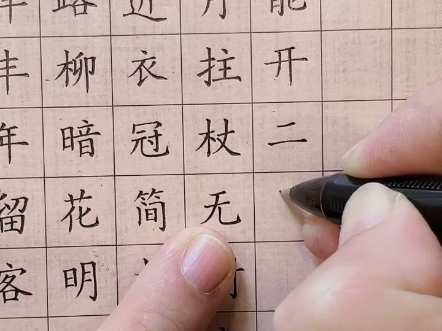 丰年留客
路柳暗花明
近衣冠简
月拄杖无
能开二